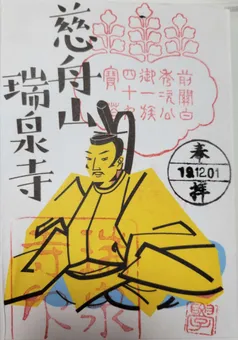 慈舟山
瑞泉寺
前関白
秀次公
御一族
四十九
奉
19.12.01
拝
瑞泉
寺印